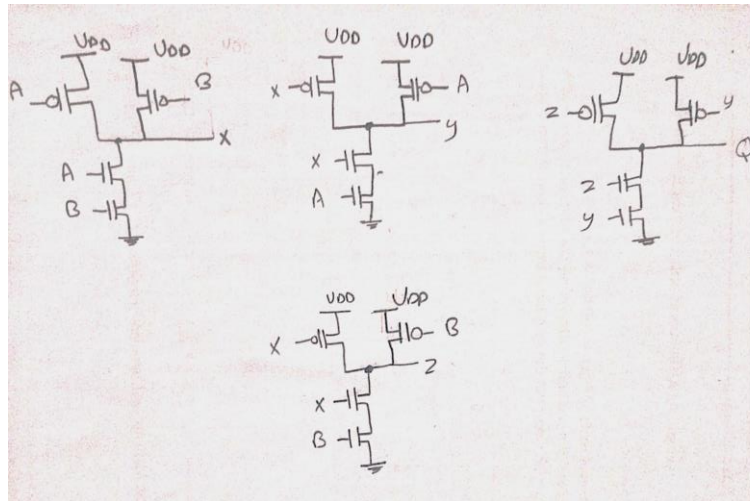 VDD VDD
A B
X
A
B
VDD VDD
X A
y
X
A
VDD VDD
Z y
Q
Z
y
VDD VDD
X B
Z
X
B